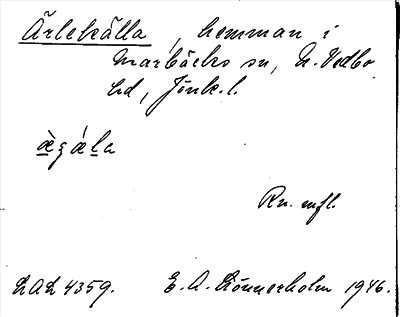 Ärlekälla, hemman i
Marbäcks sn, N. Vedbo
hd, Jönk. l.
æ̀ʒ ǽla
Rn. mfl.
LAL 4359. E. A. Lönnerholm 1946.